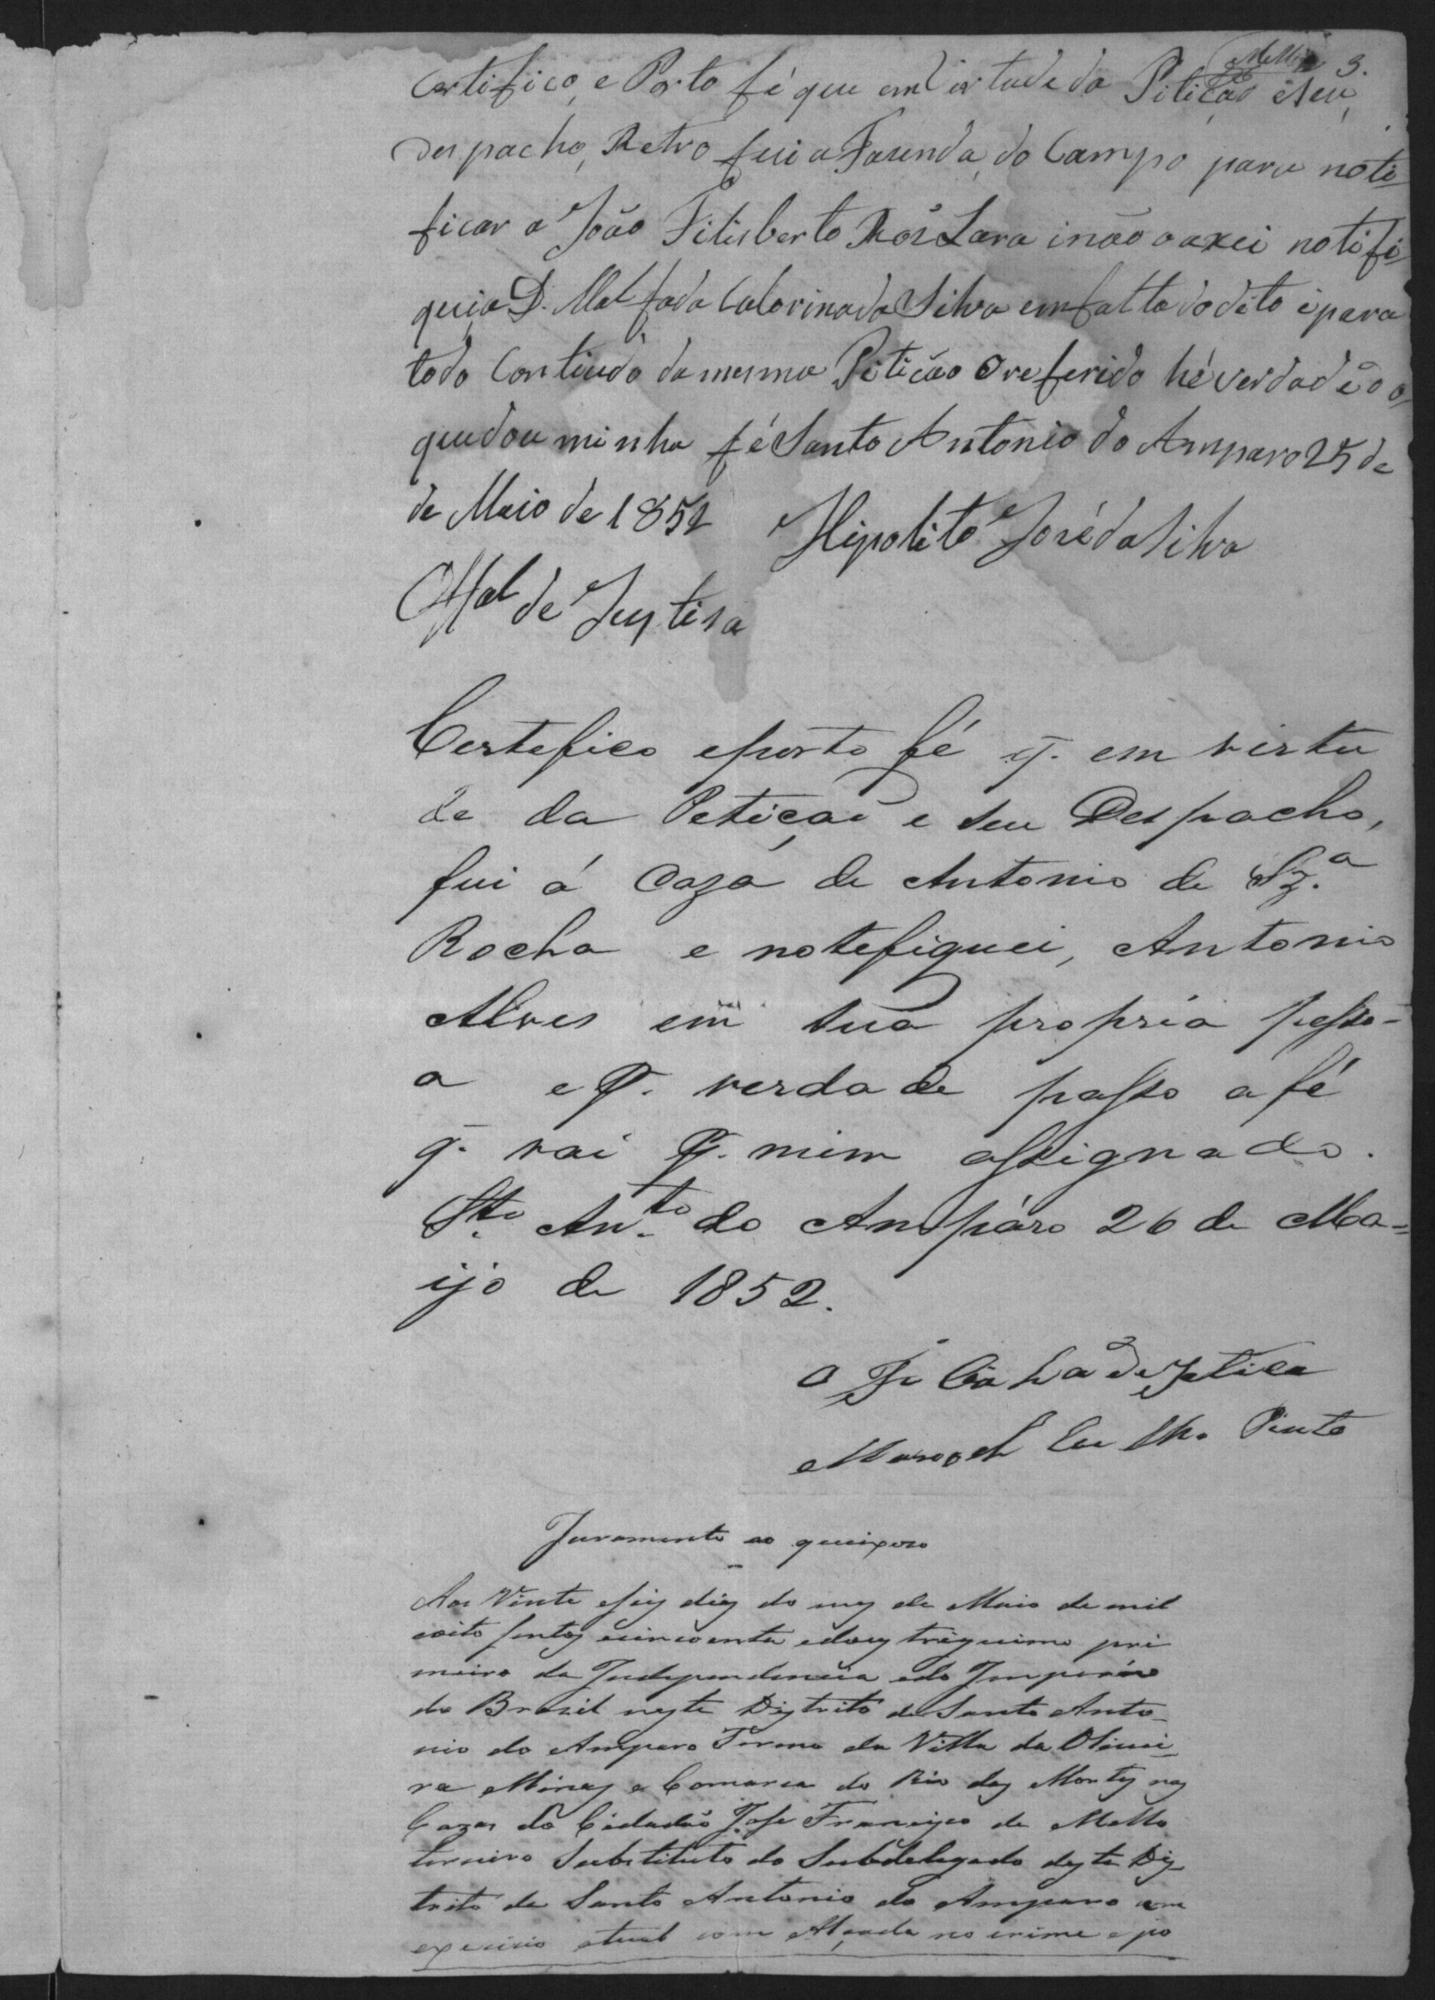 Mello 3.
Certifico, e Porto fé que em Virtude da Pitição e seu
despacho, Retro fui a Fazenda, do Campo para noti-
ficar a João Filisberto inão o axei notifi-
quei a D. Mafada Calorina da Silva em falta do dito é para
todo Contiudo da mesma Pitição O referido hé verdade o
que dou minha fé Santo Antonio do Amparo 25 de
de Maio de 1852 Hipolito José da Silva
Offal de Justisa
Certefico e porto fé q. em virtu
de da Petiçaõ e seu Despacho,
fui á Caza de Antonio de Sz.a
Rocha e notefiquei, Antonio
Alves em sua propria pesso-
a e p. verdade passo a fé
q. vai p. mim assignado.
Sto. An.to do Ampáro 26 de Ma=
ijo de 1852.
Manoel Pinto
Juramento ao queixoso
Aos Vinte e seis dias do mes de Maio de mil
oito sentos e cincoenta e dous trigisimo pri
meiro da Independencia e do Imperio
do Brasil neste Distrito de Santo Anto-
nio do Amparo Termo da Villa da Olivei-
ra Minas e Comarca do Rio das Mortes nas
Cazas do Cidadão Jose Francisco de Mello
terceiro Substituto do Subdelegado deste Dis
trito de Santo Antonio do Amparo em
exercicio atual com Alçada no crime e po